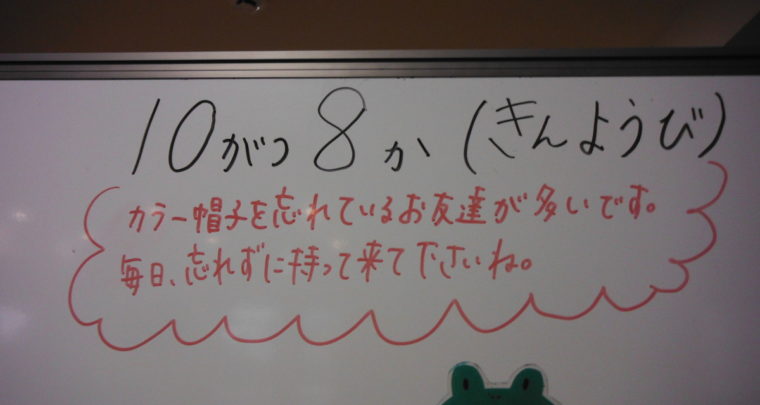 10がつ8か(きんようび)
カラー帽子を忘れているお友達が多いです。
毎日、忘れずに持って来て下さいね。